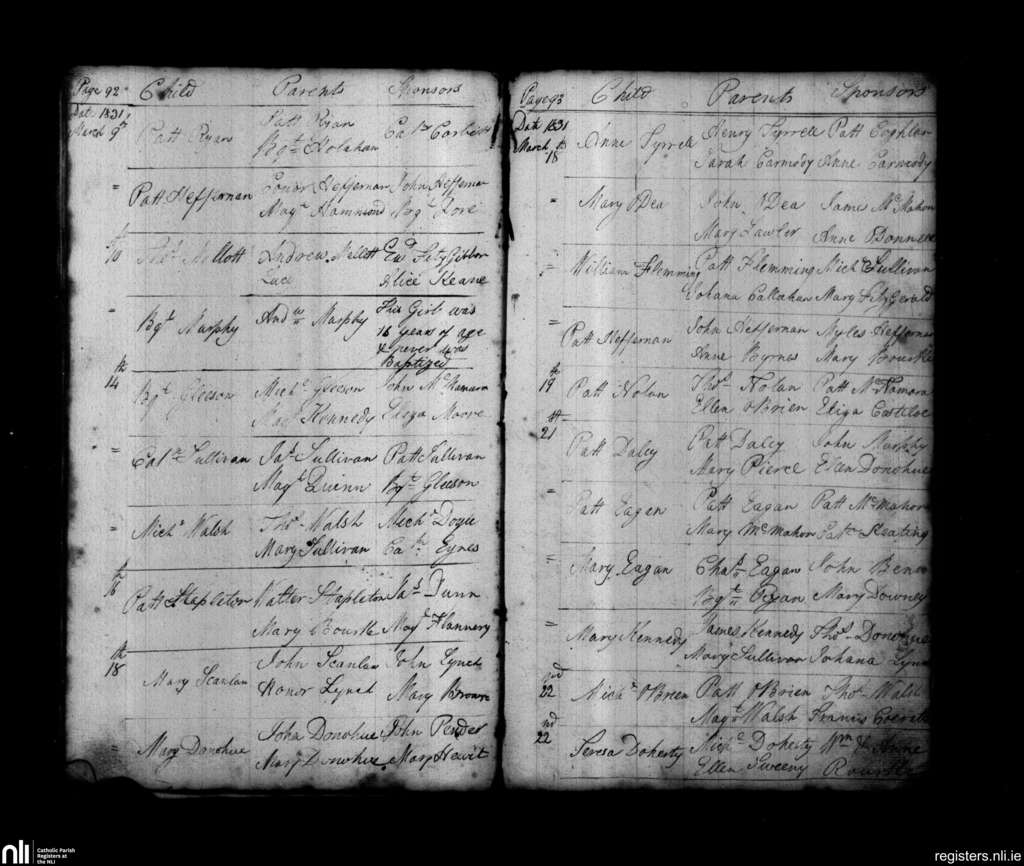 Page 92 Child Parents Sponsors
Date 1831
March 9th Patt Ryan Patt Ryan Catn Corbett
Bgt Holahan
" Patt Heffernan Conor Heffernan John Heffernan
Magt Hammond Bgt Fore
th
10 Thos Mellott Andrew Mellott Edd FitzGibbon
Luce Alice Keane
" Bgt Murphy Andw Murphy This Girl was
16 years of age
& never was
Baptized
th
14 Bgt Gleeson Michl Gleeson John McNamara
Magt Kennedy Eliza Moore
" Catn Sullivan Jas Sullivan Patt Sullivan
Magt Quinn Bgt Gleeson
" Michl Walsh Thos Walsh Michl Doyle
Mary Sullivan Catn Eynes
th
16 Patt Stapleton Walter Stapleton Jas Dunn
Mary Bourke Magt Flannery
th
18 Mary Scanlan John Scanlan John Lynch
Honor Lynch Mary Brown
" Mary Donohue John Donohue John Pender
Mary Donohue Mary Hewit
Page 93 Child Parents Sponsors
Date 1831
March 18th Anne Tyrrele Henry Tyrrele Patt Coghlan
Sarah Carmody Anne Carmody
" Mary ODea John ODea James McMahon
Mary Lawler Anne
" William Flemming Patt Flemming Michl Sullivan
Johana Callahan Mary FitzGerald
" Patt Heffernan John Heffernan Myles Heffernan
Anne Byrnes Mary Bourke
th
19 Patt Nolan Thos Nolan Patt McNamara
Ellen OBrien Eliza Costiloe
st
21 Patt Daley Patt Daley John Murphy
Mary Pierce Ellen Donohue
" Patt Eagen Patt Eagan Patt McMahon
Mary McMahon Catn Keating
" Mary Eagan Chas Eagan John
Bgt Ryan Mary Downey
" Mary Kennedy James Kennedy Thos Donohue
Mary Sullivan Johana Lynn
nd
22 Michl OBrien Patt OBrien Thos Walsh
Magt Walsh Francis
nd
22 Teresa Doherty Michl Doherty Wm & Anne
Ellen Sweeny Rourke
nli Catholic Parish
Registers at
the NLI
registers.nli.ie